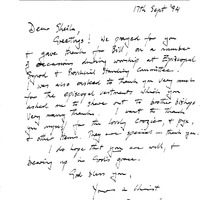 17th Sept '94
Dear Sheila,
Greetings! We prayed for you
& gave thanks for Bill, on a number
of occasions during worship at Episcopal
Synod & Standing Committee.
I was also asked to thank you very much
for the episcopal vestments which you
asked me to share out to brother bishops
Very many thanks. I want to thank
you myself for the lovely crozier, & pyx,
& other items. They are special – thank you.
I do hope that you are well, &
bearing up in God's grace.
God bless you,
Yours in Christ